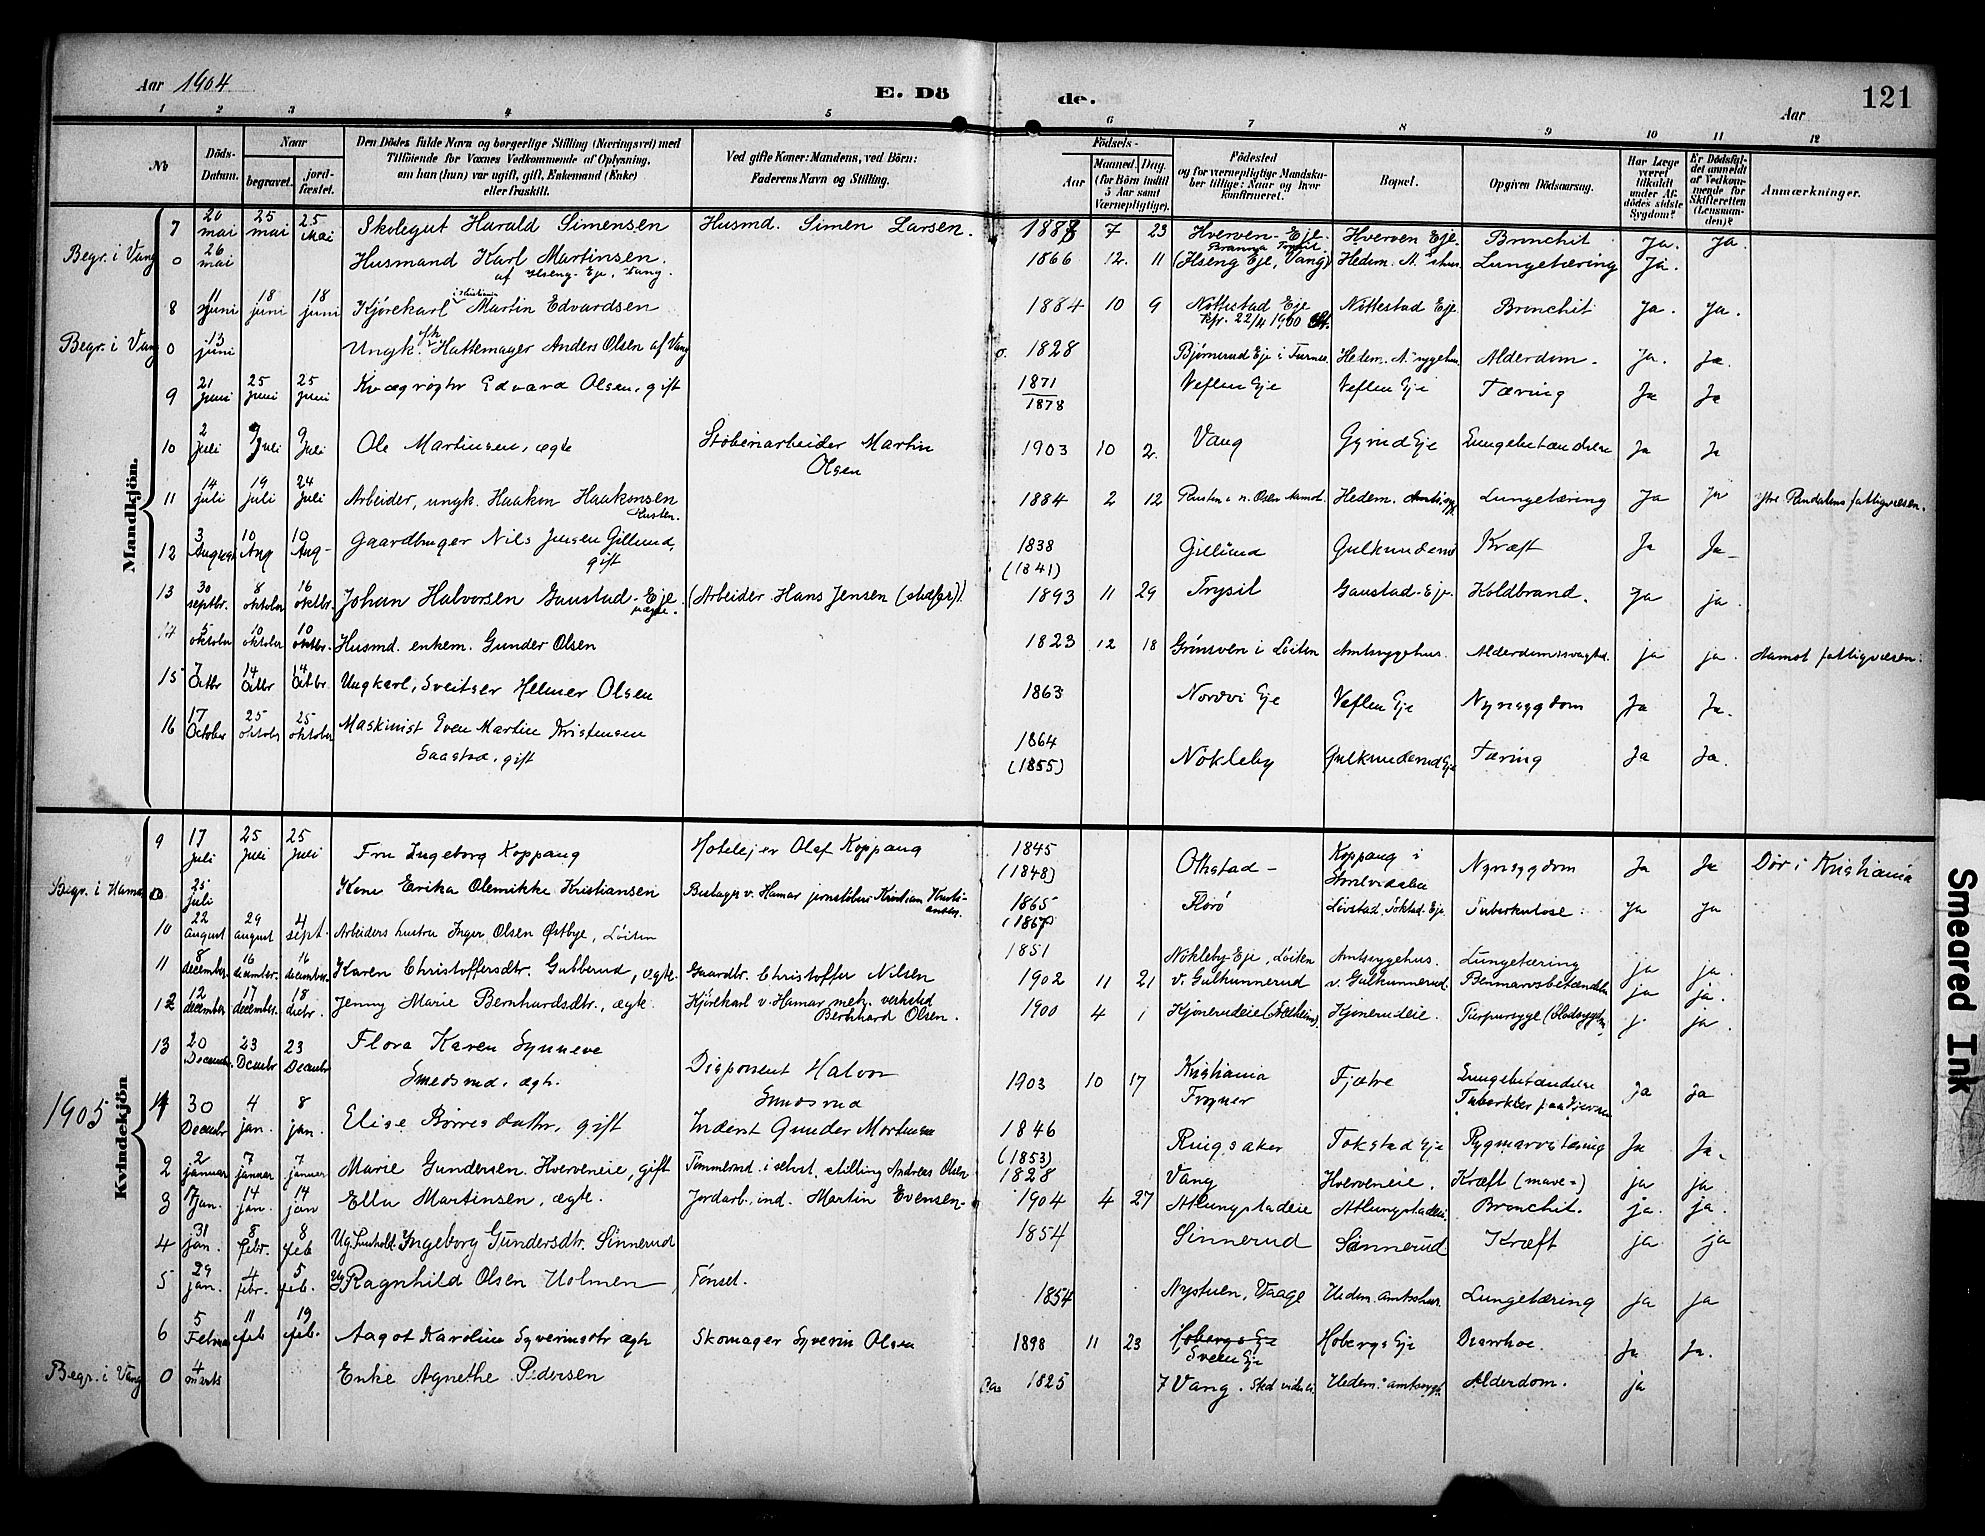 Aar 1904
E. Döde.
Aar
121
1 2 3 4 5 6 7 8 9 10 11 12
No
Döds-Datum.
Naar
begravet.
jord-fæstet.
Den Dödes fulde Navn og borgerlige Stilling (Næringsvei) med Tilföiende for Voxnes Vedkommende af Oplysning, om han (hun) var ugift, gift, Enkemand (Enke) eller fraskilt.
Ved gifte Koner: Mandens, ved Börn: Faderens Navn og Stilling.
Födsels-
Aar
Maaned. Dag.
(for Börn indtil 5 Aar samt Værnepligtige).
Födested og for værnepligtige Mandskaber tillige: Naar og hvor konfirmeret.
Bopæl.
Opgiven Dödsaarsag.
Har Læge været tilkaldt under Afdödes sidste Sygdom?
Er Dödsfaldet anmeldt af Vedkommende for Skifteretten (Lensmanden)?
Anmærkninger.
Mandkjön.
7 20 mai 25 mai 25 Mai Skolegut Harald Simensen Husmd. Simen Larsen. 1888 7 23 Hverven-Eje. Hverven Eje. Bronchit Ja. Ja.
Begr. i Vang 0 26 mai Husmand Karl Martinsen. af Hseng-Eje, Vang. 1866 12. 11 (Hseng Eje, Vang) Hedem. A. Lungetæring Ja.
8 11 juni 18 juni 18 juni Kjørekarl Martin Edvardsen 1884 10 9 Nøttestad Eje Kfr. 22/4 1900 Nøttestad Eje Bronchit Ja. Ja.
Begr. i Vang 0 13 juni Ungk. Hattemager Anders Olsen af Vang 1828 Bjørnerud Eje i Furnes Hedem. A. sygehus. Alderdom. Ja. Ja.
9 21 juni 25 juni 25 juni Kvægrøgter Edvard Olsen, gift 1871 1878 Veflen Eje Veflen Eje Tæring Ja Ja
10 2 Juli 9 Juli 9 Juli Ole Martinsen, ægte Støberiarbeider Martin Olsen 1903 10 2. Vang Gyrud Eje Lungebetændelse Ja Ja
11 14 juli 19 juli 24 Juli Arbeider, ungk. Haakon Haakonsen Rusten. 1884 2 12 Rusten i n. Osen Aamot. Hedem. Amtssyg. Lungetæring Ja ja ytre Rendalens fattigvæsen.
12 3 August 10 Aug 10 Aug- Gaardbruger Nils Jensen Gillund, gift 1838 (1841) Gillund Gulkunderud Kræft Ja Ja-
13 30 septbr. 8 oktober 16 oktbr. Johan Halvorsen Gaustad-Eje uægte. (Arbeider Hans Jensen (stedfar)). 1893 11 29 Trysil Gaustad-Eje. Koldbrand. Ja ja.
14 5 oktober 10 oktober 10 oktbr. Husmd. enkem. Gunder Olsen 1823 12 18 Grønsven i Løiten Amtssygehus. Alderdomssvaghed. ja ja. Aamot fattigvæsen.
15 7 Octbr 14 Octbr 14 Octbr. Ungkarl, Sveitser Helmer Olsen 1863 Nordvi Eje Veflen Eje Nyresygdom Ja Ja.
16 17 October 25 oktober 25 oktober Maskinist Even Martin Kristensen Saastad, gift 1864 (1855) Nökleby Gulkunderud Eje Tæring Ja Ja.
Kvindekjön
9 17 juli 25 Juli 25 juli Fru Ingeborg Koppang Hotelejer Olaf Koppang 1845 (1848) Othstad- Koppang i Storelvdalen Nyresygdom Ja Ja Dør i Kristiania
Begr. i Hamar 0 25 juli Kone Erika Olemikke Kristiansen Kristian Kristiansen. 1865 (1867) Florø Løvstad, Tokstad-Eje. Tuberkulose. Ja Ja
10 22 august 29 august 4 sept. Arbeiders hustru Inger Olsen Østbye, Løiten 1851 Nökleby-Eje, Løiten Amtssygehus. Lungetæring ja ja.
11 8 december. 16 december. 16 december. Karen Christoffersdtr. Gubberud, ægte. Gaardbr. Christoffer Nilsen 1902 11 21 v. Gulkunnerud v. Gulkunnerud Benmarvsbetændelse ja ja.
12 12 december 17 december. 18 decbr. Jenny Marie Bernhardsdtr., ægte. Kjørekarl v. Hamar mek. verksted Bernhard Olsen. 1900 4 1 Kjønerudeie (Solheim). Kjønerudeie. Purpursyge (Blodsygdom) j. ja.
13 20 December. 23 Decmbr 23 Decmbr Flora Karen Synneve Smedsrud, ægte. Disponent Halvor Smedsrud 1903 10 17 Kristiania Frogner Fjætre Lungebetændelse Tuberkler paa Hjernen Ja Ja
1905 14 30 Decmbr 4 jan. 8 jan. Elise Børresdatter, gift Inderst Gunder Mortensen 1846 (1853) Ringsaker Tokstad Eje Rygmarvstæring Ja Ja.
2 2 januar 7 januar 7 januar Marie Gundersen Hverveneie, gift Tømmermd. i selvst. stilling Andreas Olsen 1828 Vang Hverveneie. Kræft (mave-) ja ja.
3 7 jan. 14 jan. 14 jan Ella Martinsen, ægte. Jordarb. ind. Martin Evensen- 1904 4 27 Atlungstadeie Atlungstadeie Bronchit. ja. ja.
4 31 jan. 8 febr. 8 feb Ug. Ingeborg Gundersdtr. Sinnerud 1854 Sinnerud Sinnerud Kræft ja ja
5 29 jan. 4 febr. 5 feb. Ug Ragnhild Olsen Holmen Tønset. 1854 Nystuen, Vaage Hedem. amtshus. Lungetæring ja ja
6 5 Februar 11 feb 19 feb. Aagot Karoline Syverinsdtr ægte Skomager Syverin Olsen 1898 11 23 Hobergs Eje Sveen Eje Hobergs Eje Diarrhoe. Ja Ja.
Begr. i Vang 0 4 marts Enke Agnethe Pedersen 1825 Vang. Hedem. amtssygh. Alderdom. ja
Smeared Ink